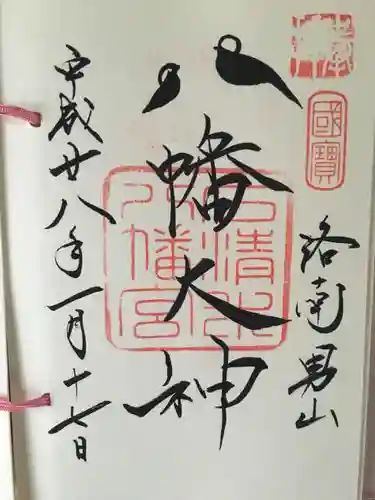 奉拝
國寶
洛南男山
八幡大神
石清水八幡宮
平成廿八年一月十七日